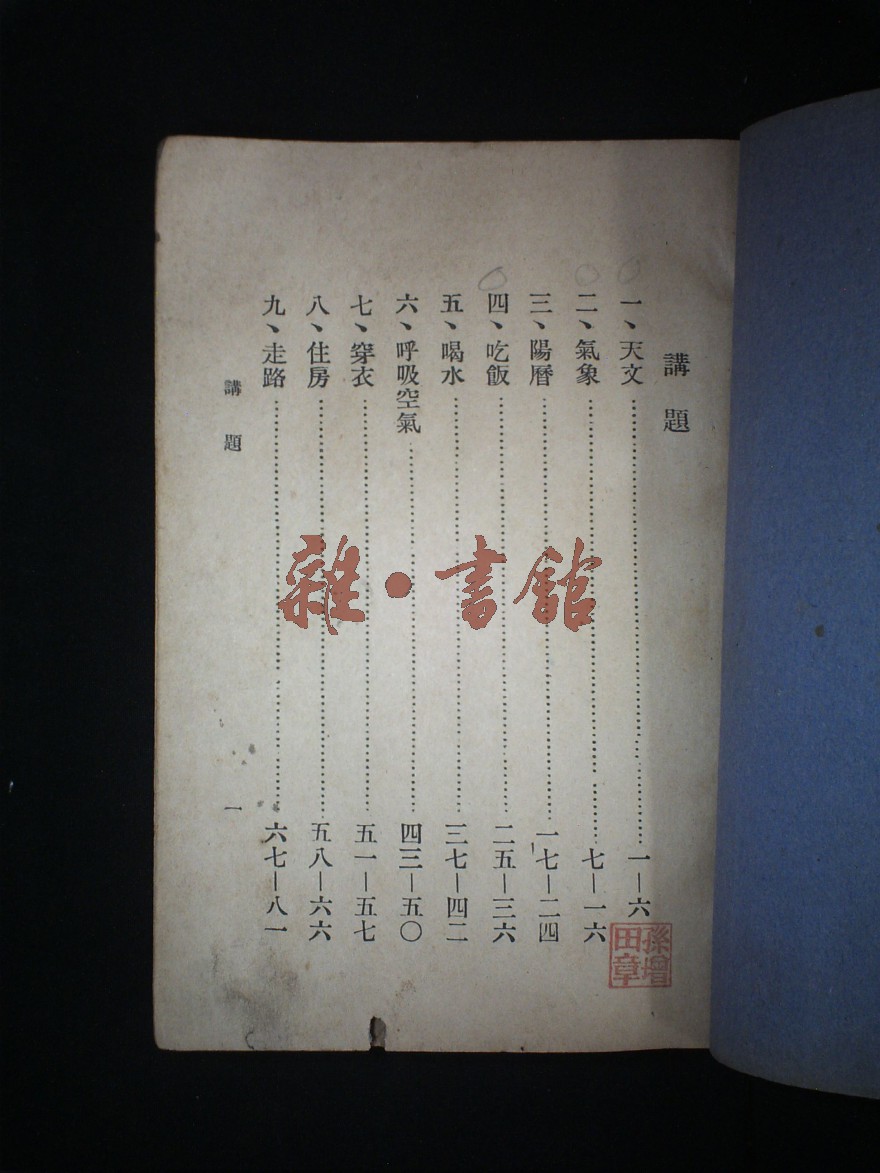 講題
一、天文……一—六
二、氣象……七—一六
三、陽曆……一七—二四
四、吃飯……二五—三六
五、喝水……三七—四二
六、呼吸空氣……四三—五〇
七、穿衣……五一—五七
八、住房……五八—六六
九、走路……六七—八一
講題 一
孫增田章
雜·書館